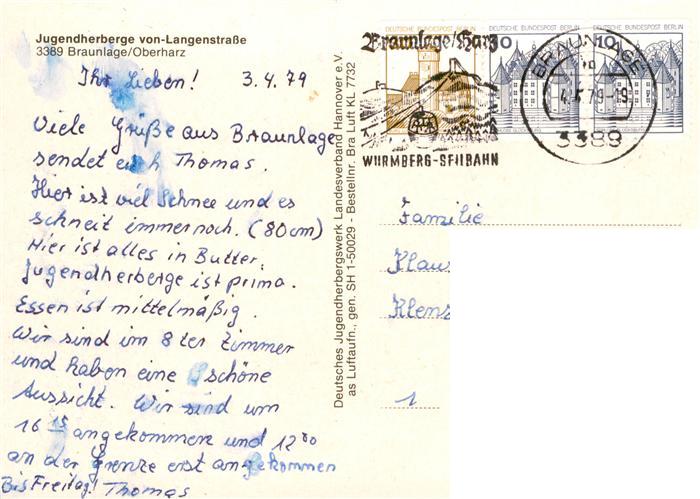 Jugendherberge von-Langenstraße
3389 Braunlage/Oberharz
Ihr Lieben! 3.4.79
Viele Grüße aus Braunlage
sendet euch Thomas.
Hier ist viel Schnee und es
schneit immer noch. (80cm)
Hier ist alles in Butter.
Jugendherberge ist prima.
Essen ist mittelmäßig.
Wir sind im 8ter Zimmer
und haben eine schöne
Aussicht. Wir sind um
16 15 angekommen und 12 00
an der Grenze erst angekommen
Bis Freitag! Thomas
Deutsches Jugendherbergswerk Landesverband Hannover e.V.
as Luftaufn., gen. SH 1-50029 - Bestellnr. Bra Luft KL 7732
DEUTSCHE BUNDESPOST BERLIN
DEUTSCHE BUNDESPOST BERLIN
DEUTSCHE BUNDESPOST BERLIN
Braunlage/Harz
WURMBERG-SEILBAHN
BRAUNLAGE
3389
Familie
Klaus
1